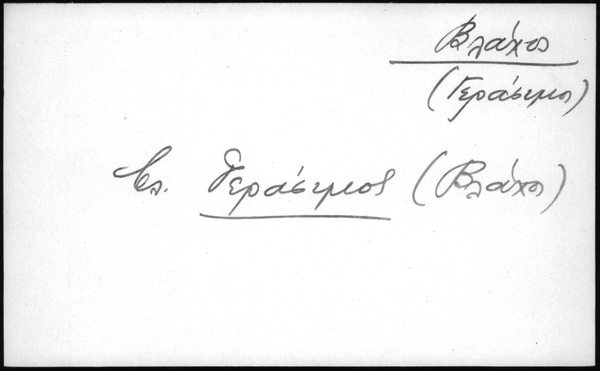 Βλάχος
(Γεράσιμος)
Βλ. Γεράσιμος (Βλάχος)